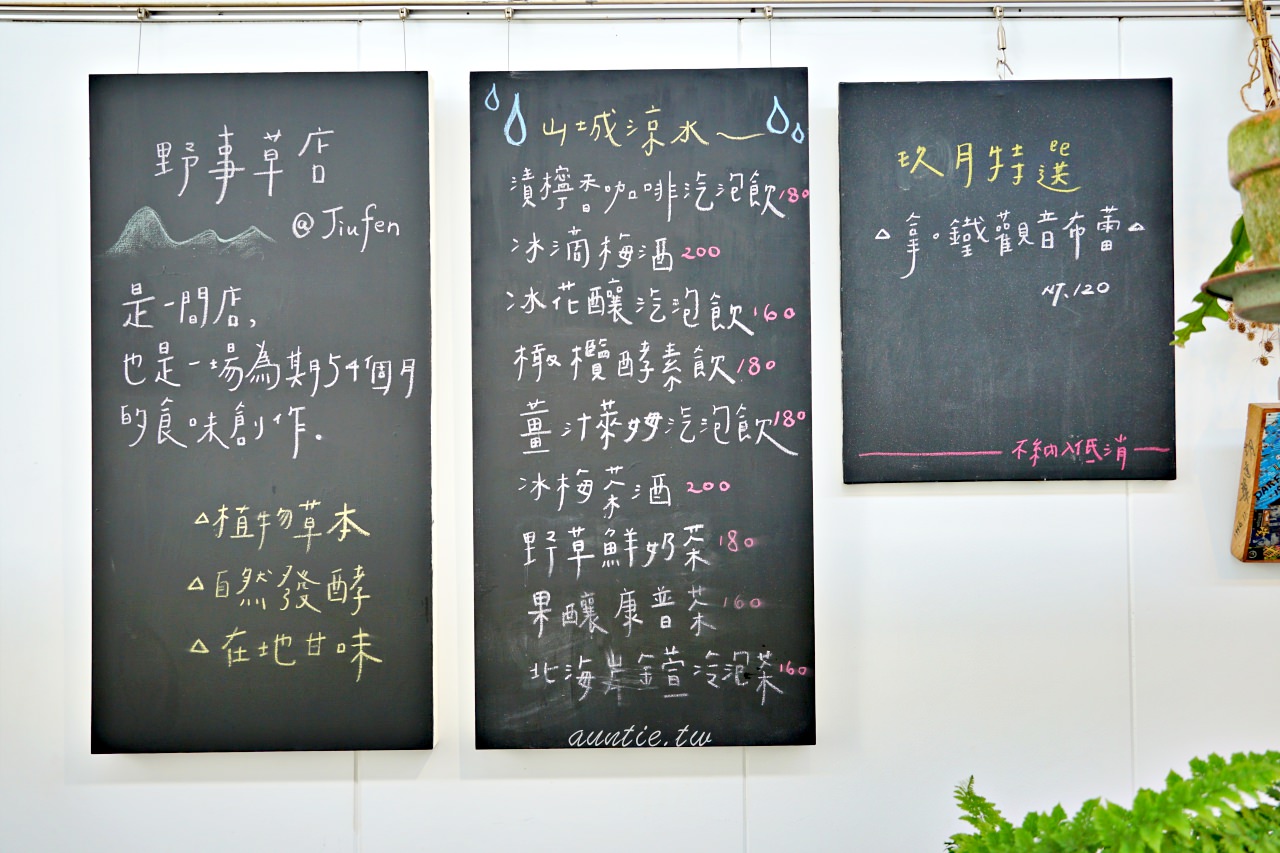 野事草店
@Jiufen
是一間店,
也是一場為期54個月
的食味創作.
△植物草本
△自然發酵
△在地甘味
山城涼水
漬檸香咖啡汽泡飲180
冰滴梅酒200
冰花釀汽泡飲160
橄欖酵素飲180
薑汁萊姆汽泡飲180
冰梅茶酒200
野草鮮奶茶180
果釀康普茶160
北海岸金萱冷泡茶160
auntie.tw
玖月特選
△拿。鐵觀音布蕾△
NT.120
不納入低消